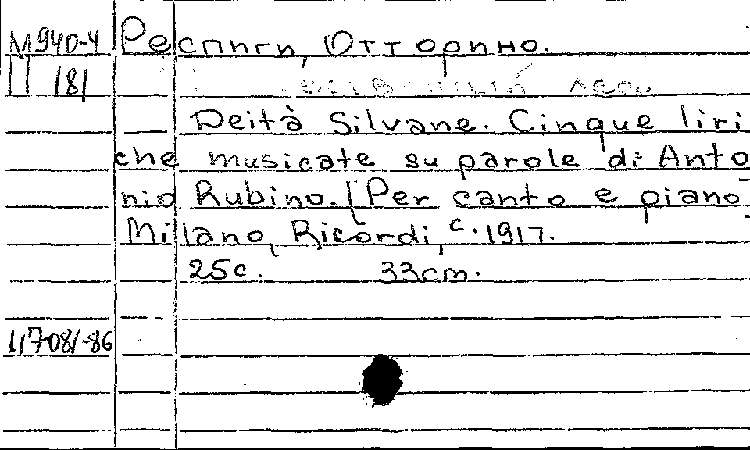 М940-4 Респиги, Отторино.
П 181
Deità Silvane. Cinque liri
che musicate su parole di Anto
nio Rubino. Per canto e piano
Milano, Ricordi, c. 1917.
25c. 33cm.
11708/-86